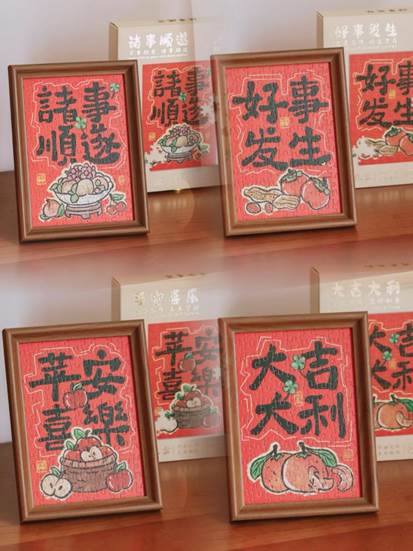 諸事順遂
諸事
順遂
諸事
順遂
好事发生
好事
发生
好事
发生
苹安
喜樂
苹安
喜
大吉大利
大吉
大利
吉
利